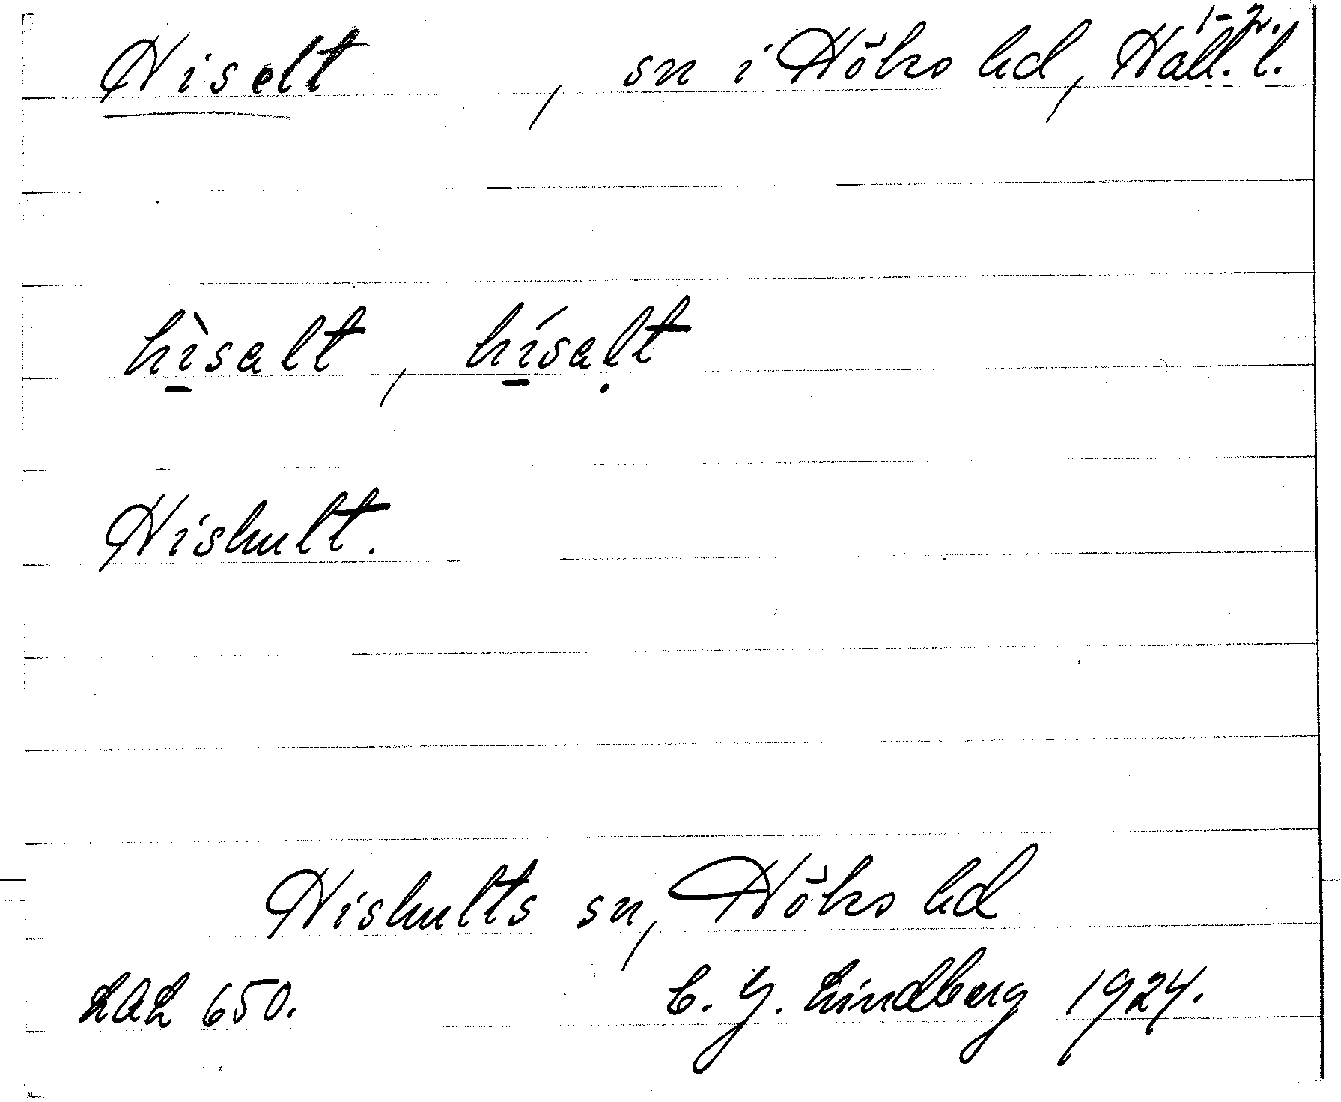 1-2.
Hiselt, sn i Höks hd, Hall. l.
hìsalt, hísalt
Hishult.
Hishults sn, Höks hd
LAL 650. C. G. Lindberg 1924.